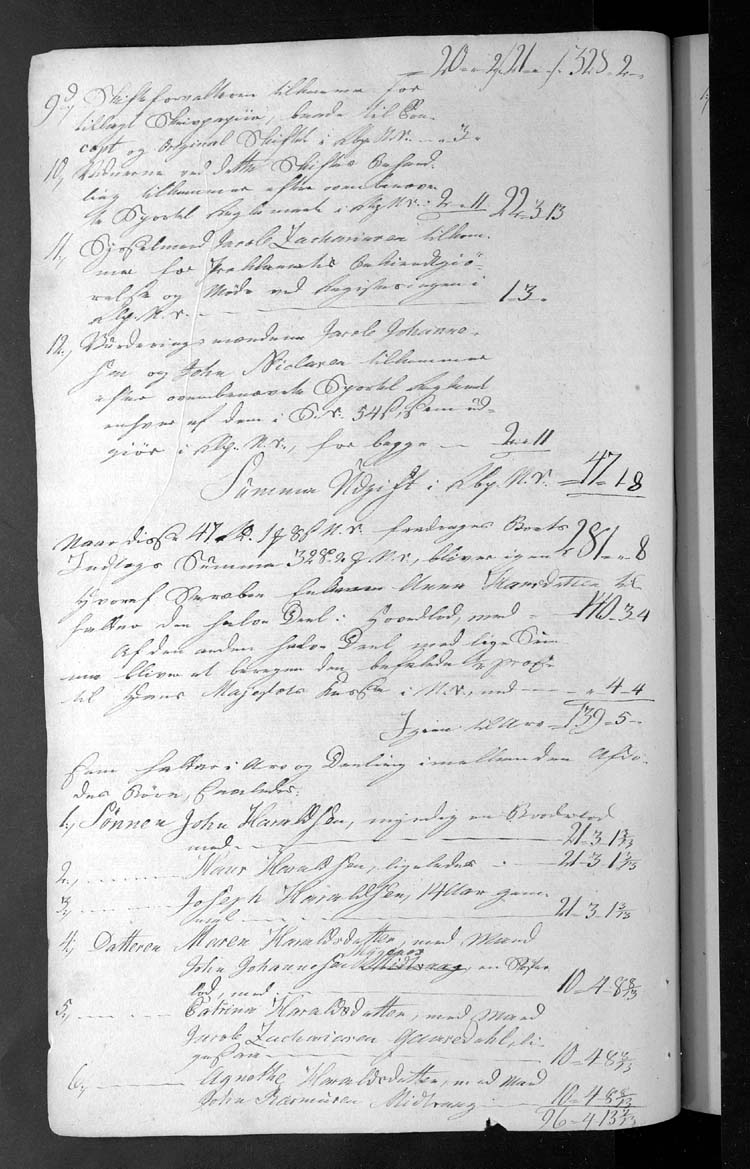 20 - 2 / 21 - / 328 - 2 -
9de, Skifteforvalteren tilkommer for
tillagt Skrivpapiir, baade til Con-
cept og Original Skiftet i Rbp. N.V. - „ 3 „
10, Vidnerne ved dette Skiftes Behand-
ling tilkommer efter ovenbenævn-
te Sportel Reglement i Rbp. N.V.: 2 „ 11 22 „ 3 13
11, Sysselmand Jacob Zachariasen tilkom-
mer for Proklamatis Bekiendtgiö-
relse og Möde ved Registeringen i
Rbp. N.V. - 1 „ 3 „
12, Vurderingsmændene Jacob Johanne-
sen og John Niclasen tilkommer
efter ovenbenævnte Sportel Reglemt
enhver af dem i S.V. 54 ß, som ud-
giör i Rbp. N.V., for begge - 2 „ 11
Summa Udgift i Rbp. N.V. - 47 „ 1 8
Naar disse 47 Rd. 1 8 ß N.V. fradrages Boets
Indtægts Summa 328 „ 2 N.V., bliver igien 281 „ „ 8
Hvoraf Sterbo Enken Anna Hansdatter til-
falder den halve Deel: Hovedlod, med - 140 „ 3 4
Af den anden halve Deel med lige Sum-
ma bliver at beregne den befalede
til Hans Majestæts Kasse i N.V., med - „ 4 „ 4
Igien til Arv - 139 „ 5 „
Som falder i Arv og Deeling imellem den Afdö-
des Börn, saaledes:
1, Sönnen John Haraldsen, myndig en Broderlod
med - 21 „ 3 „ 1 3/13
2, - Hans Haraldsen, ligeledes - 21 „ 3 1 3/13
3, - Joseph Haraldsen, 14 Aar gam-
mel - 21 „ 3 „ 1 3/13
4, Datteren Maren Haraldsdatter, med Mand
John Johannesen en Söster-
lod, med - 10 „ 4 „ 8 8/13
5, - Catrina Haraldsdatter, med Mand
Jacob Zachariasen Gaasedahl, li-
gesaa - 10 „ 4 8 8/13
6, - Agnethe Haraldsdatter, med Mand
John Rasmusen Midtvaag - 10 „ 4 8 8/13
96 „ 4 13